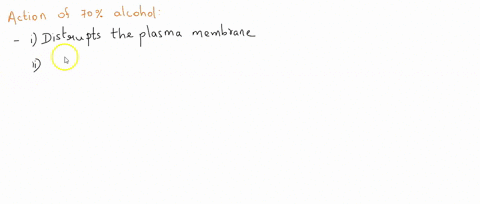 Action of 70% alcohol:
- i) Distrupts the plasma membrane
ii)